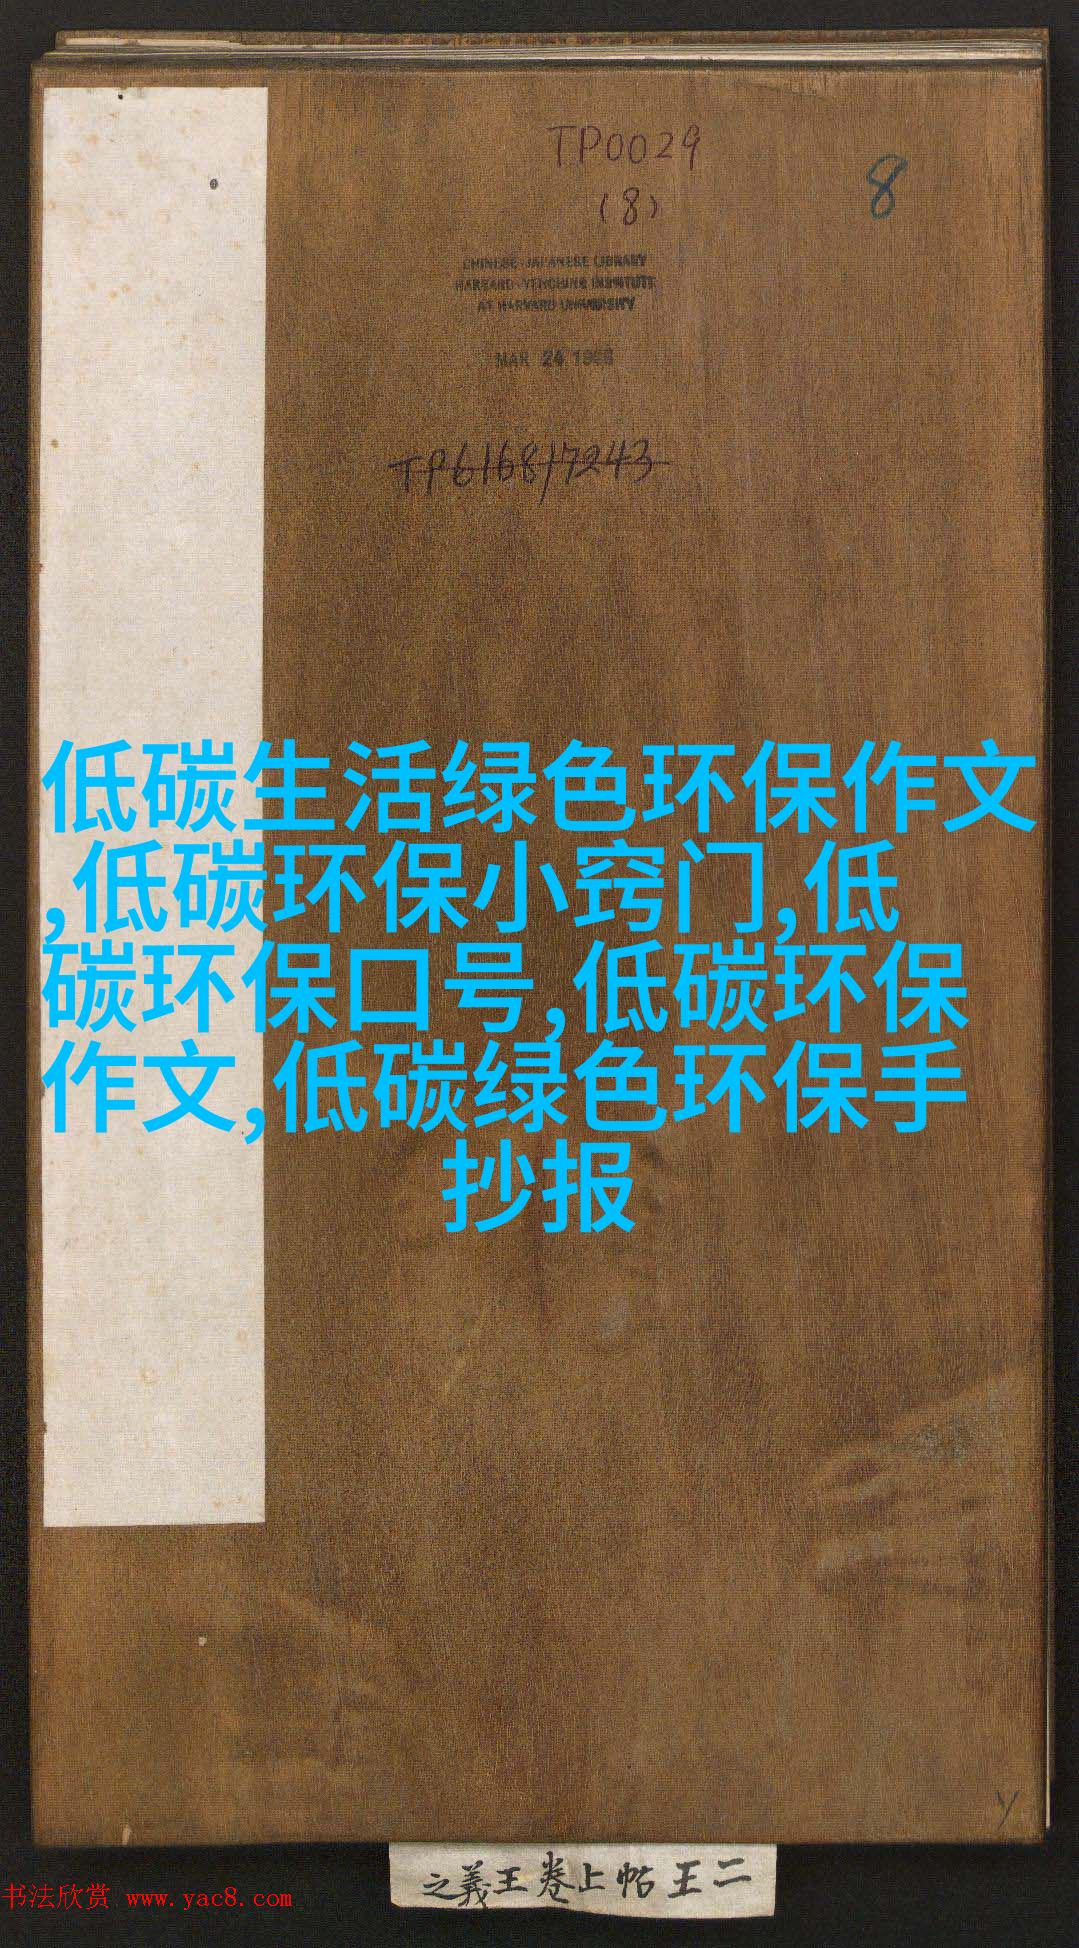 TP0029
(8)
8
CHINESE-JAPANESE LIBRARY
HARVARD-YENCHING INSTITUTE
AT HARVARD UNIVERSITY
MAR 24 19
TP6168/7243
低碳生活绿色环保作文
,低碳环保小窍门,低
碳环保口号,低碳环保
作文,低碳绿色环保手
抄报
二王帖上卷王羲之
书法欣赏 www.yac8.com